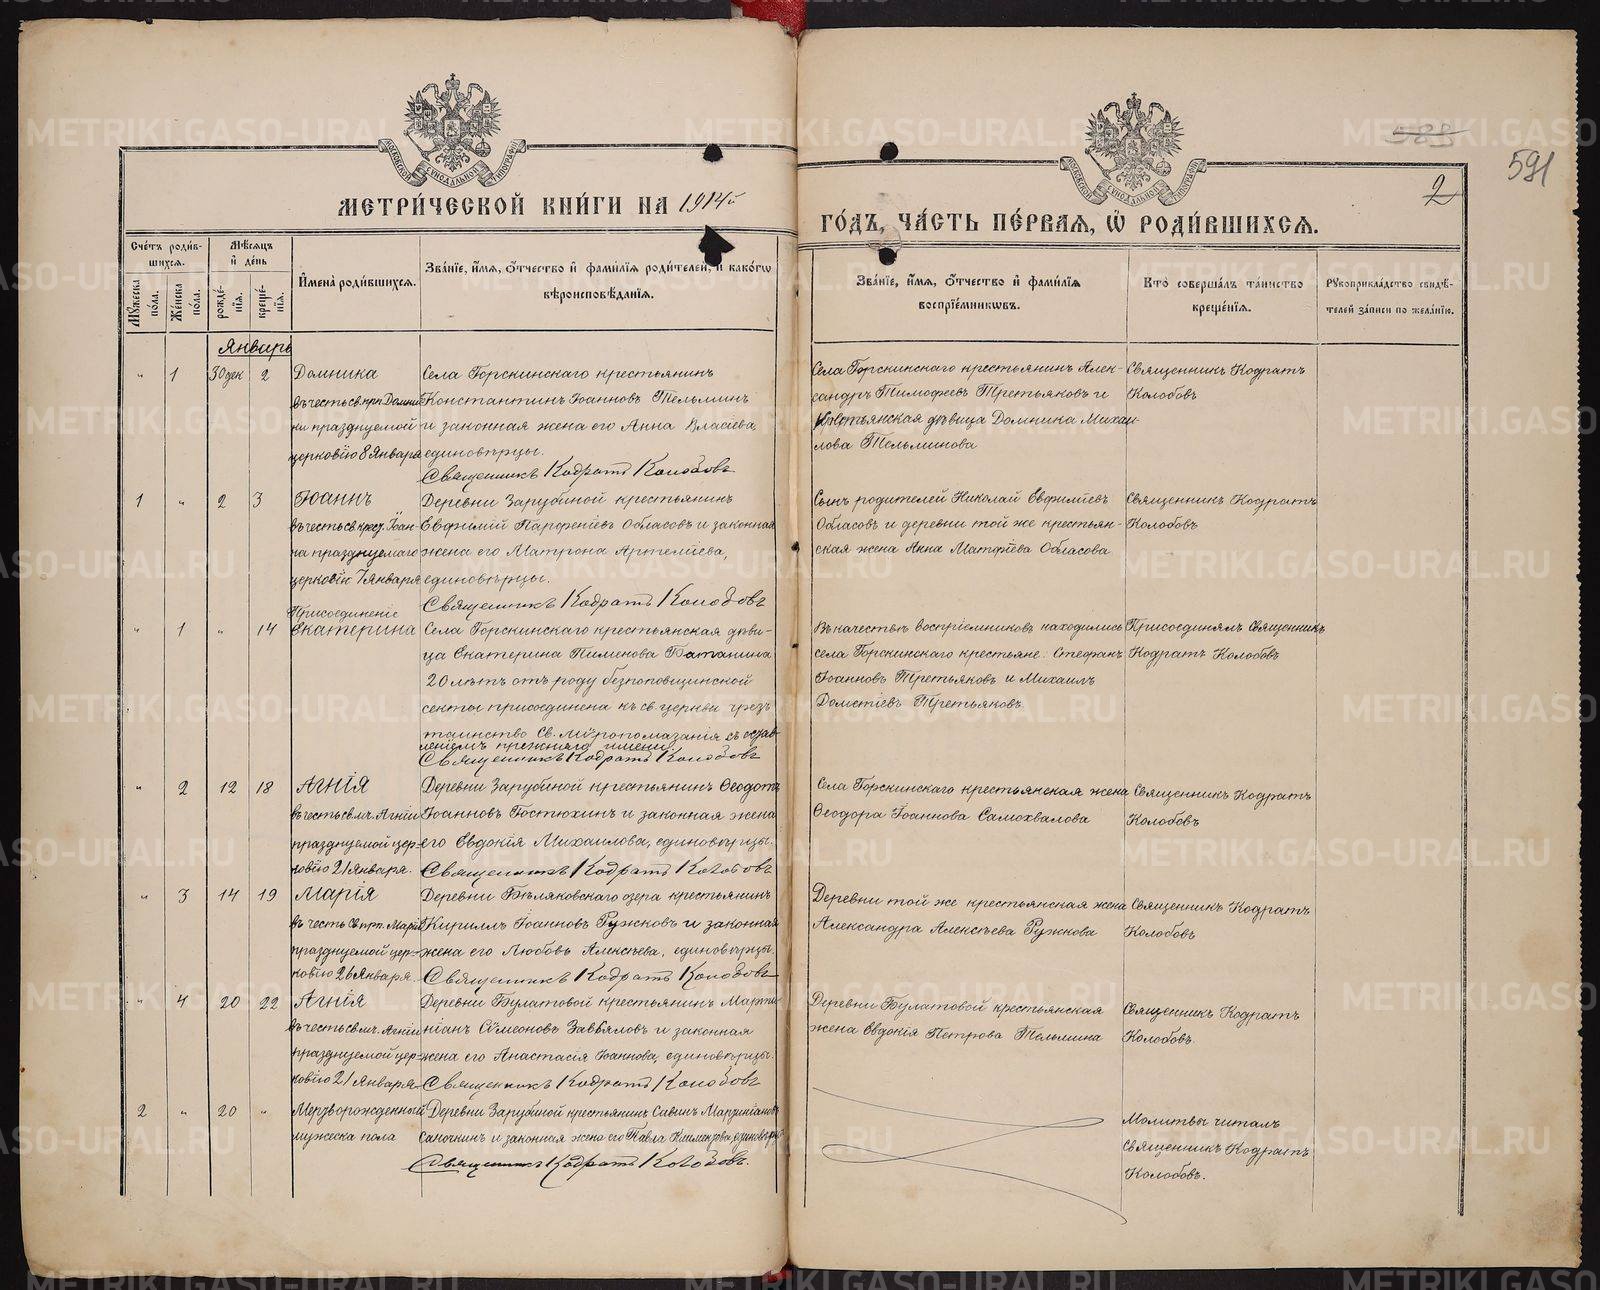 588
591
2
МОСКОВСКОЙ СѴНОДАЛЬНОЙ ТИПОГРАФІИ
МОСКОВСКОЙ СѴНОДАЛЬНОЙ ТИПОГРАФІИ
МЕТРИ́ЧЕСКОЙ КНИ́ГИ НА 1914й
ГО́ДЪ, ЧА́СТЬ ПЕ́РВАЯ, Ѡ҆ РОДИ́ВШИХСЯ.
Сче́тъ роди́в-
шихся.
Мѣ́сяцъ
и҆ де́нь
Мꙋ́жеска
по́ла.
Же́нска
по́ла.
рожде́-
нїя.
креще́-
нїя.
И҆мена̀ роди́вшихся.
Зва́нїе, и҆́мя, ѻ҆́тчество и҆ фами́лїя роди́телей, и҆ како́гѡ
вѣроисповѣ́данїя.
Зва́нїе, и҆́мя, ѻ҆́тчество и҆ фами́лїя
воспрїе́мникѡвъ.
Кто̀ соверша́лъ та́инство
креще́нїя.
Рꙋкоприкла́дство свидѣ́-
телей за́писи по жела́нїю.
Январь
" 1 30 дек 2
Домника
въ честь св. прп. Домни-
ки празднуемой
церковію 8 Января
Села Горскинскаго крестьянинъ
Константинъ Іоанновъ Тельминъ
и законная жена его Анна Власіева,
единовѣрцы.
Священникъ Кодратъ Колобовъ
Села Горскинскаго крестьянинъ Алек-
сандръ Тимофеевъ Третьяковъ и
крестьянская дѣвица Домника Михаи-
лова Тельминова
Священникъ Кодратъ
Колобовъ
1 " 2 3
Іоаннъ
въ честь св. крест. Іоан-
на празднуемаго
церковію 7 января
Деревни Зарубиной крестьянинъ
Евфимій Парфеніевъ Обласовъ и законная
жена его Матрона Артеміева,
единовѣрцы.
Священникъ Кодратъ Колобовъ
Сынъ родителей Николай Евфиміевъ
Обласовъ и деревни той же крестьян-
ская жена Анна Матфіева Обласова
Священникъ Кодратъ
Колобовъ
" 1 " 14
Присоединеніе
Екатерина
Села Горскинскаго крестьянская дѣви-
ца Екатерина Пименова Батанина
20 лѣтъ отъ роду безпоповщинской
секты присоединена къ св. церкви чрезъ
таинство Св. Мѵропомазанія съ остав-
леніемъ прежняго имени.
Священникъ Кодратъ Колобовъ
Въ качествѣ воспріемниковъ находились
села Горскинскаго крестьяне: Стефанъ
Іоанновъ Третьяковъ и Михаилъ
Дометіевъ Третьяковъ
Присоединялъ Священникъ
Кодратъ Колобовъ
" 2 12 18
Агнія
въ честь св. мч. Агніи
празднуемой цер-
ковію 21 января.
Деревни Зарубиной крестьянинъ Ѳеодотъ
Іоанновъ Костюхинъ и законная жена
его Евдокія Михаилова, единовѣрцы.
Священникъ Кодратъ Колобовъ
Села Горскинскаго крестьянская жена
Ѳеодора Іоаннова Самохвалова
Священникъ Кодратъ
Колобовъ
" 3 14 19
Марія
въ честь св. прп. Маріи
празднуемой цер-
ковію 26 января.
Деревни Бѣляковскаго озера крестьянинъ
Кириллъ Іоанновъ Ружковъ и законная
жена его Любовь Алексѣева, единовѣрцы.
Священникъ Кодратъ Колобовъ
Деревни той же крестьянская жена
Александра Алексѣева Ружкова
Священникъ Кодратъ
Колобовъ
" 4 20 22
Агнія
въ честь св. мч. Агніи
празднуемой цер-
ковію 21 января
Деревни Булатовой крестьянинъ Марти-
ніанъ Сѵмеоновъ Завьяловъ и законная
жена его Анастасія Іоаннова, единовѣрцы.
Священникъ Кодратъ Колобовъ
Деревни Булатовой крестьянская
жена Евдокія Петрова Тельмина
Священникъ Кодратъ
Колобовъ.
2 " 20 "
Мертворожденный
мужеска пола
Деревни Зарубиной крестьянинъ Савинъ Мартиніановъ
Саночкинъ и законная жена его Павла Климентова, единовѣрцы
Священникъ Кодратъ Колобовъ.
Молитвы читалъ
Священникъ Кодратъ
Колобовъ.
METRIKI.GASO-URAL.RU